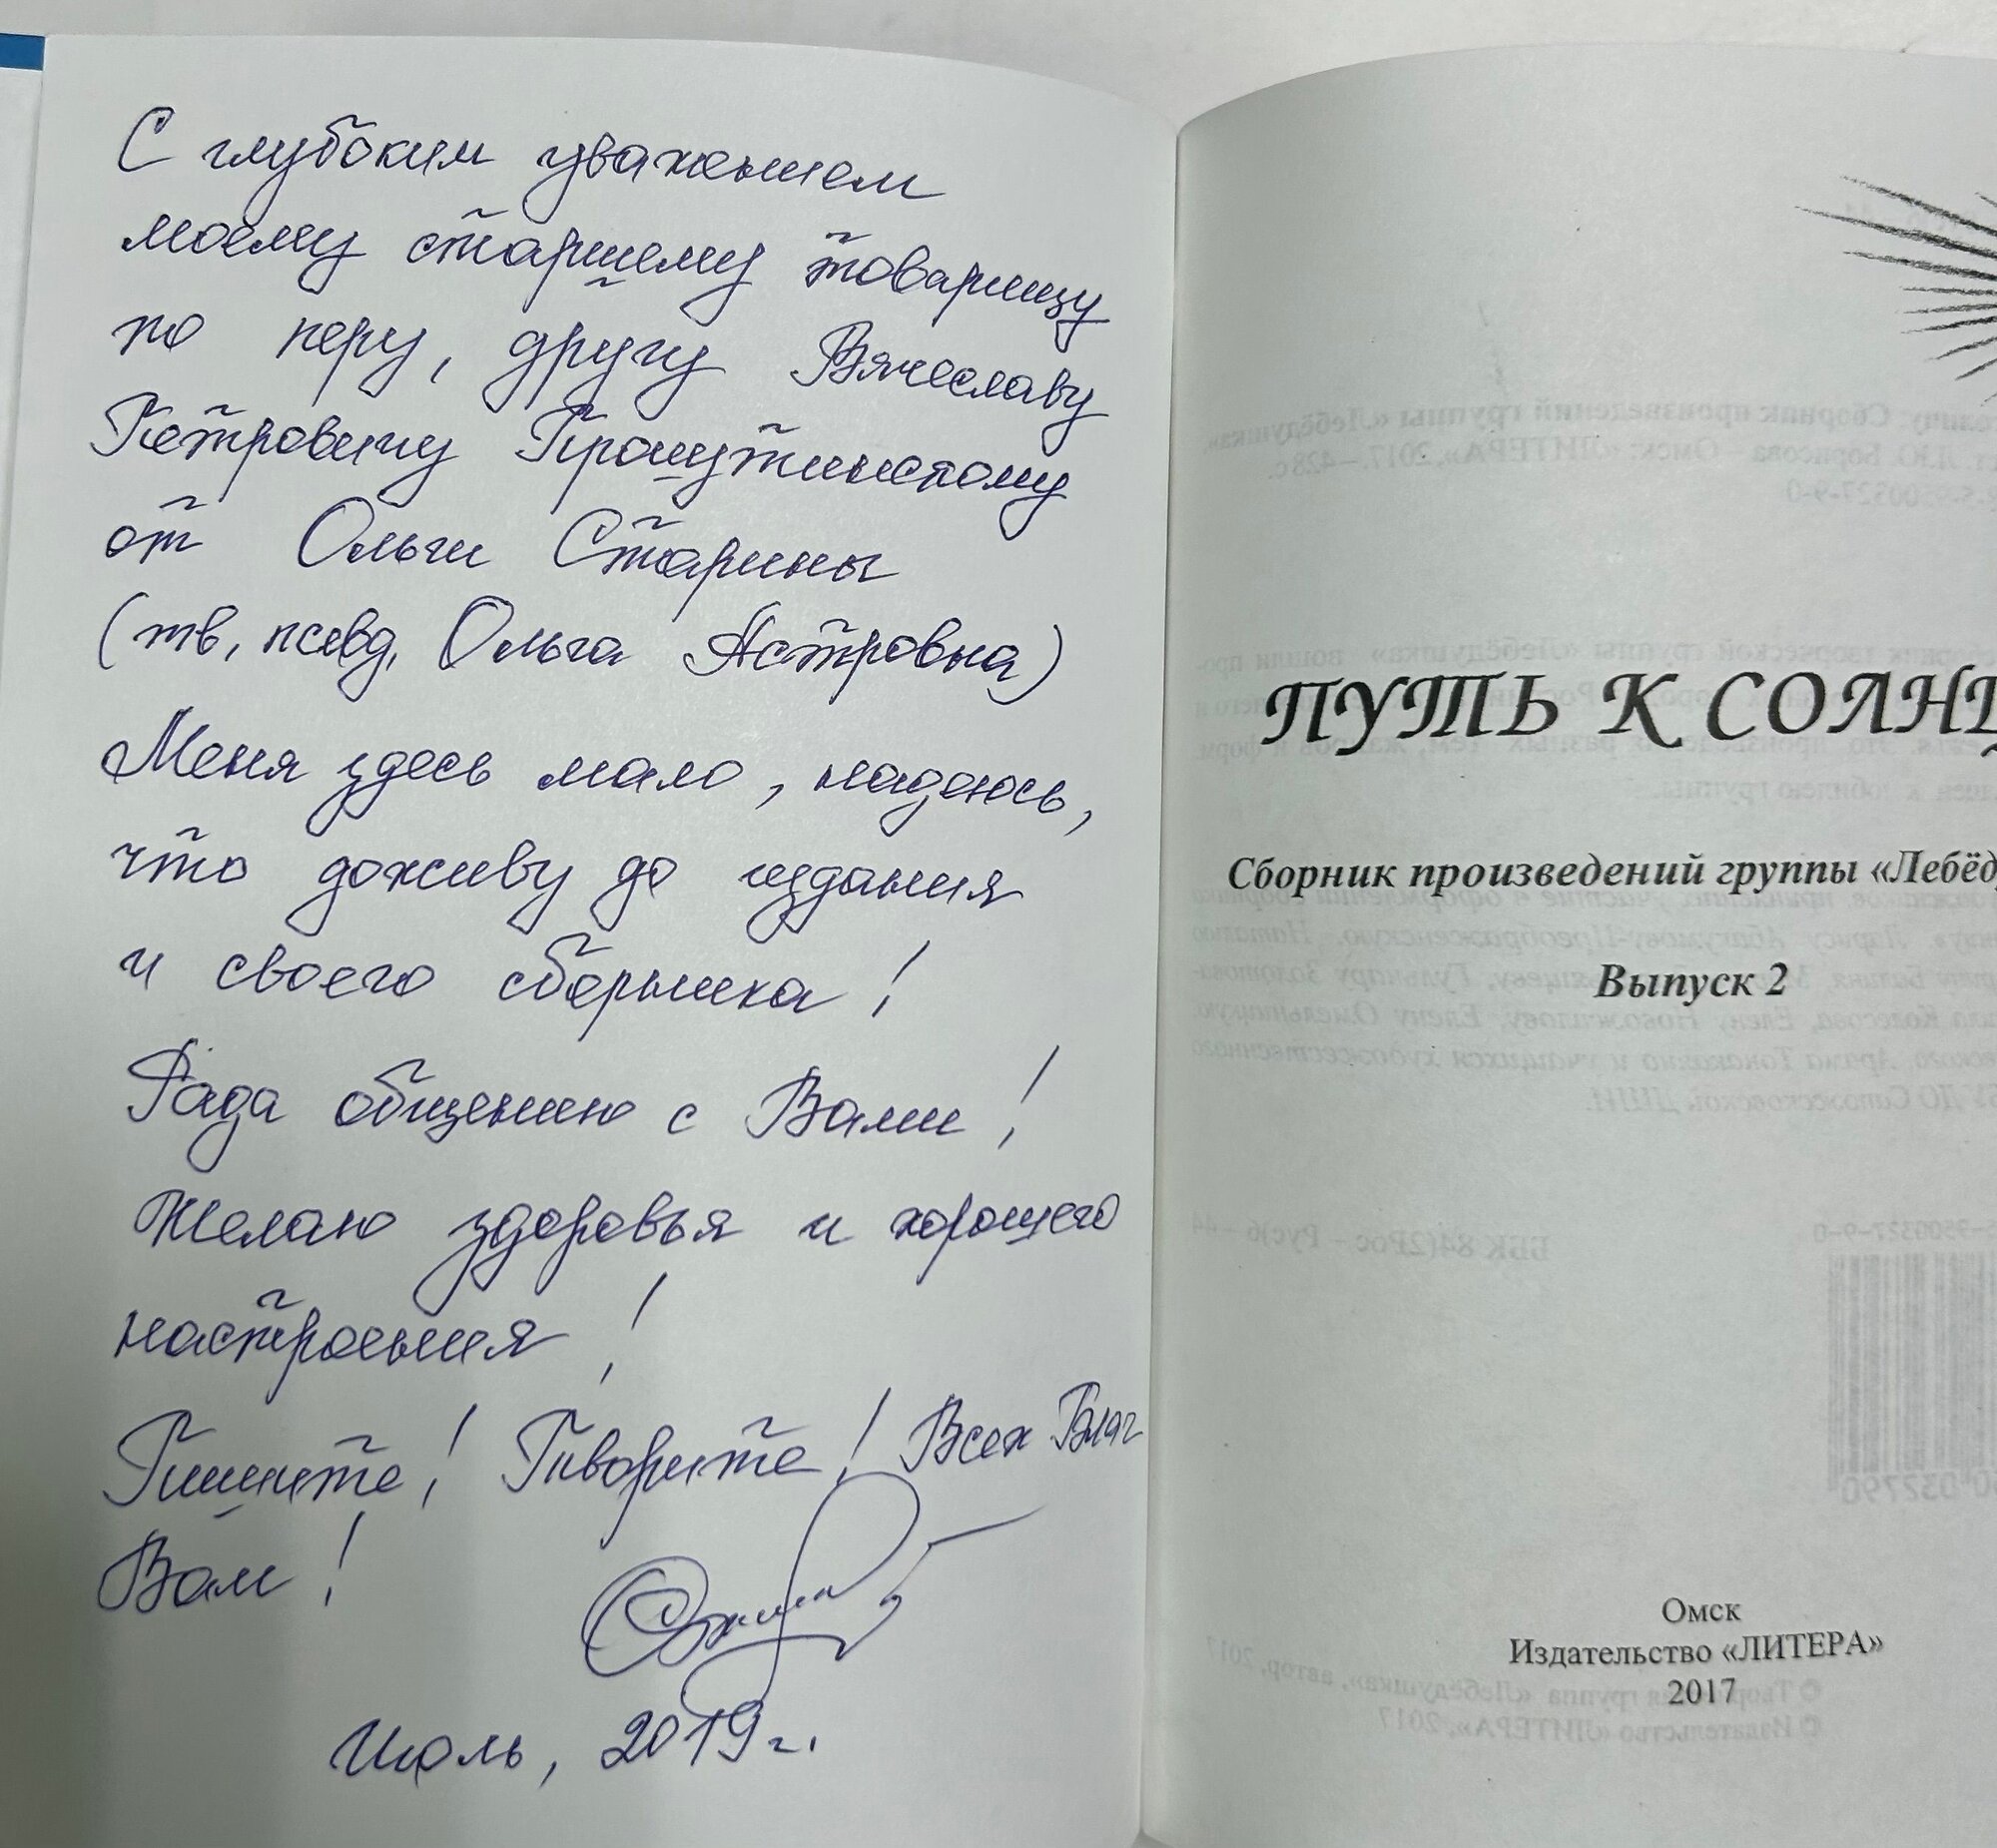 С глубоким уважением
моему старшему товарищу
по перу, другу Вячеславу
Петровичу Прашутинскому
от Ольги Старины
(тв, псевд. Ольга Астровна)
Меня здесь мало, надеюсь,
что доживу до издания
и своего сборника!
Рада общению с Вами!
Желаю здоровья и хорошего
настроения!
Пишите! Творите! Всех Благ
Вам!
Июль, 2019 г.
ПУТЬ К СОЛНЦ
Сборник произведений группы «Лебёд
Выпуск 2
Омск
Издательство «ЛИТЕРА»
2017